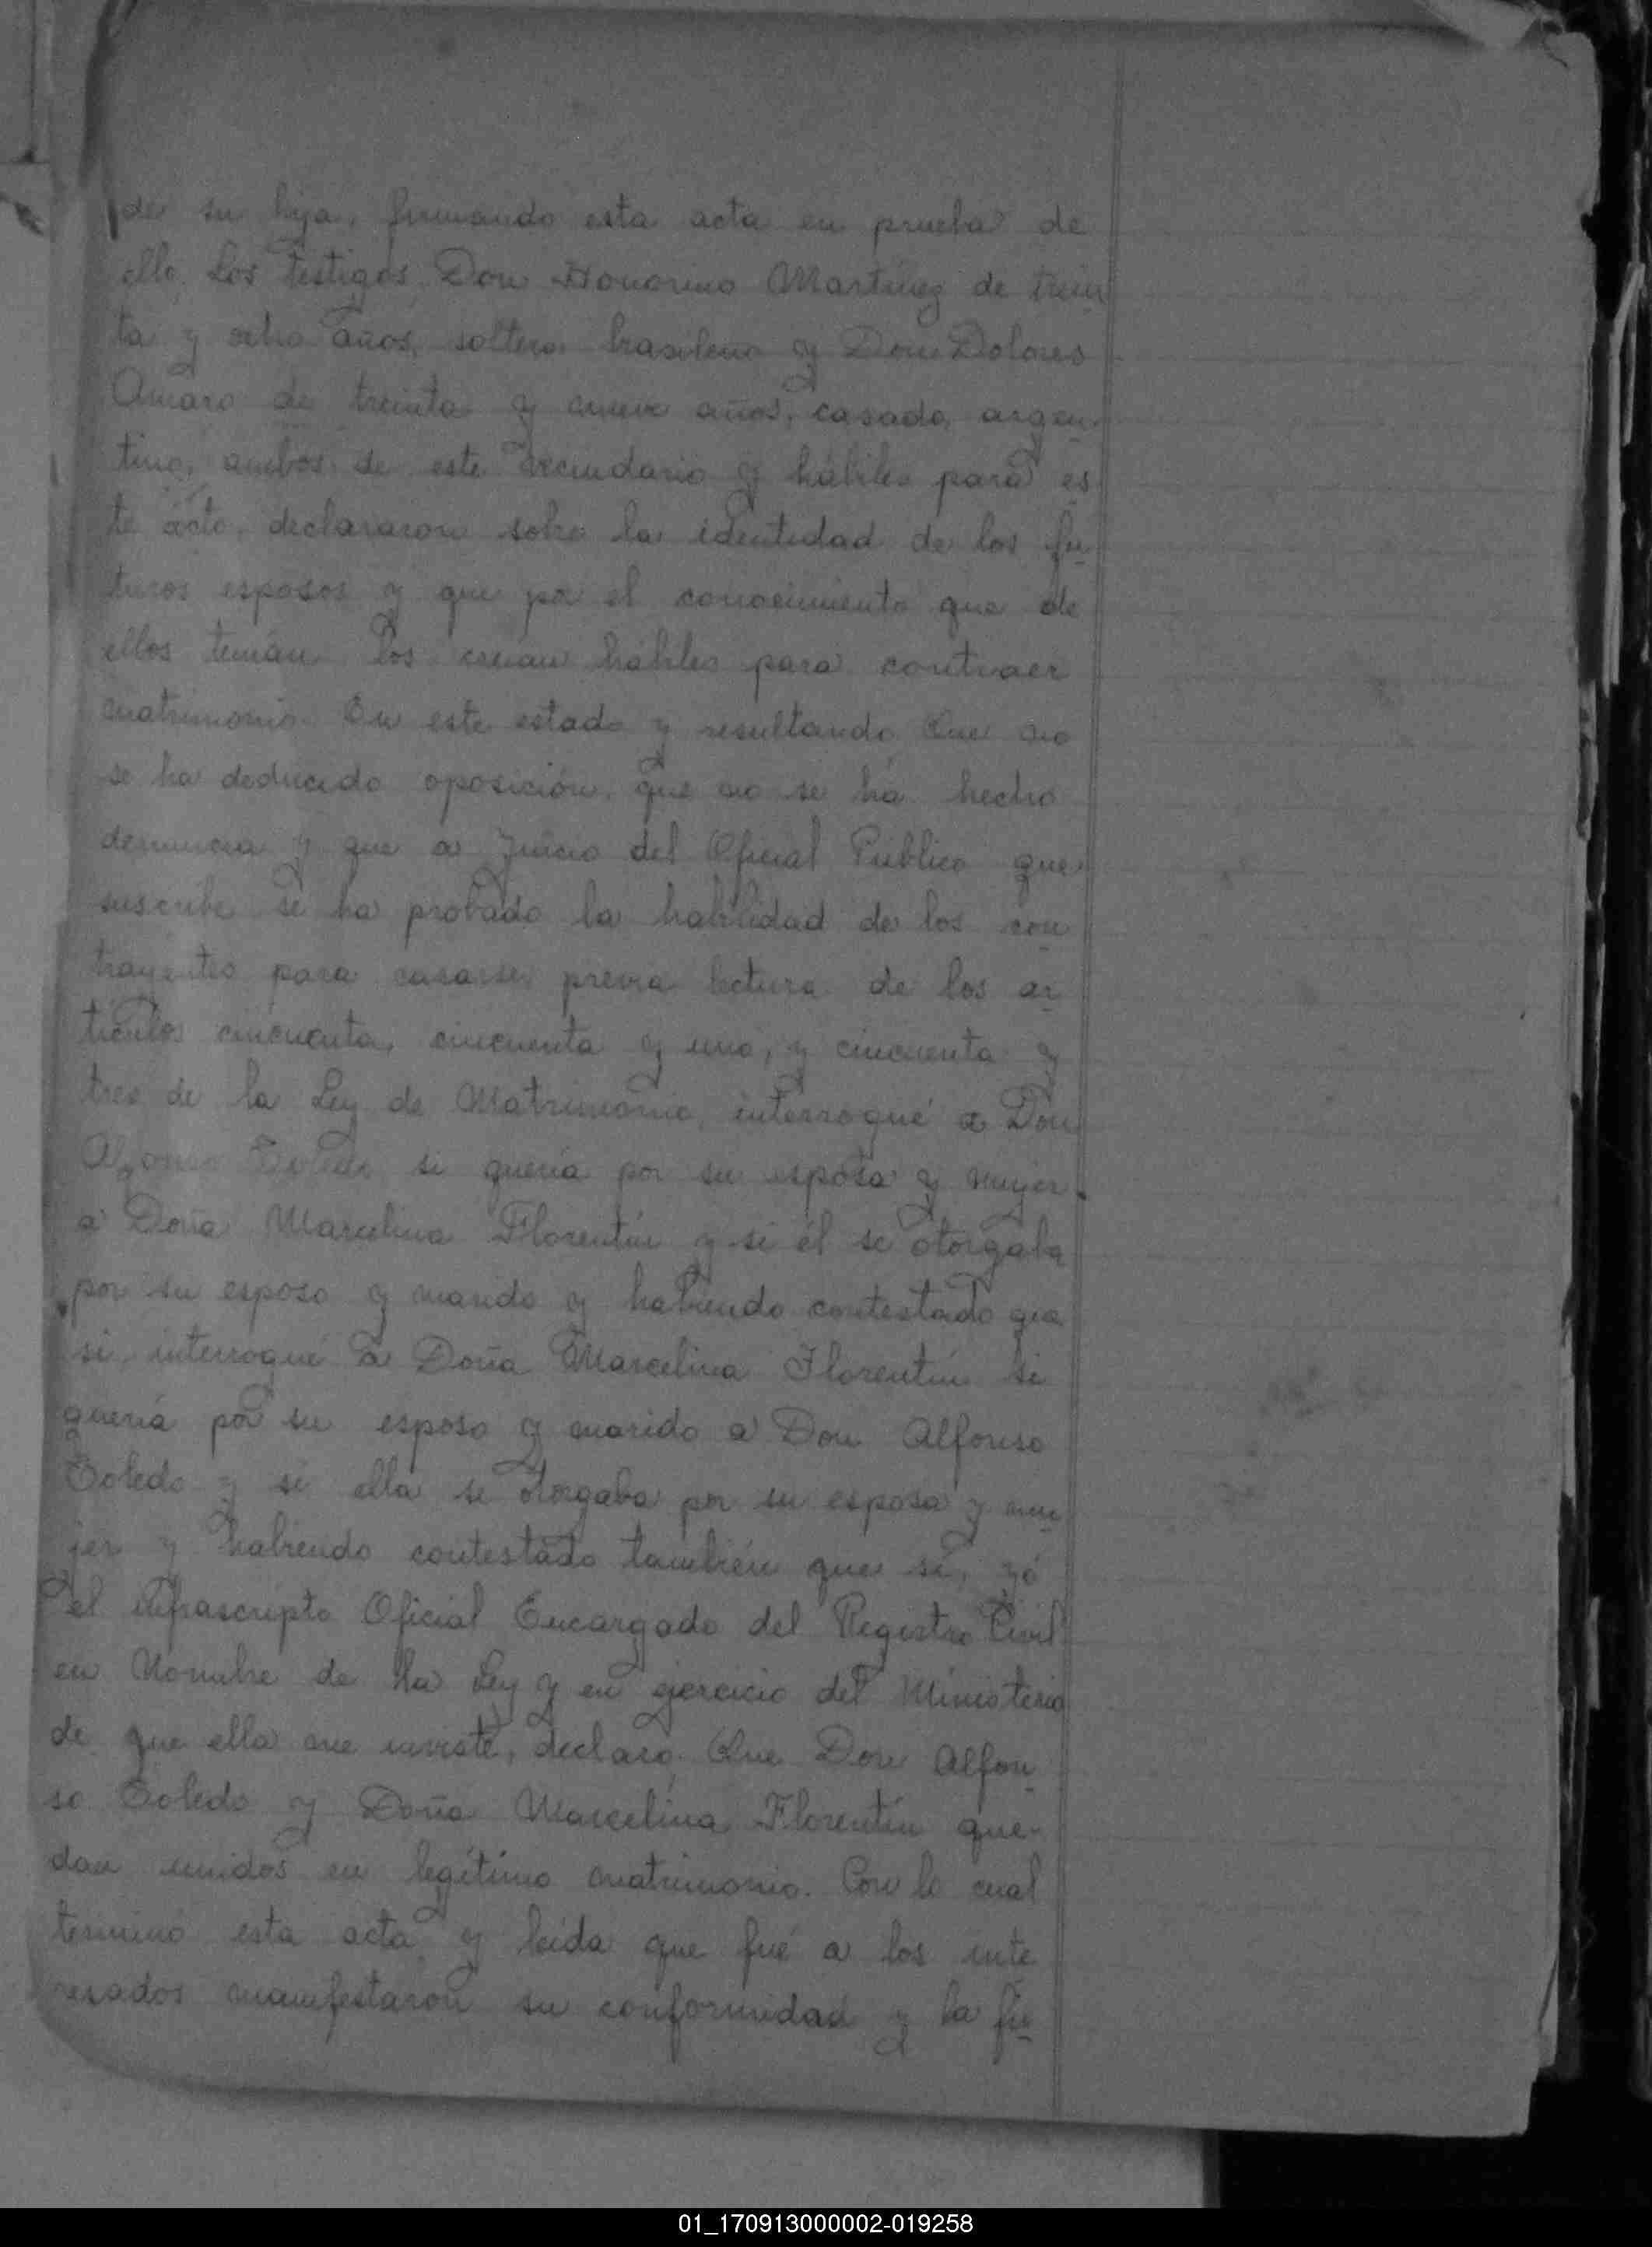 de su hija, firmando esta acta en prueba de
ello. Los testigos Don Honorino Martinez de trein
ta y ocho años, soltero brasileño y Don Dolores
Amaro de treinta y nueve años, casado, argen-
tino, ambos de este vecindario y hábiles para es
te acto, declararon sobre la identidad de los fu-
turos esposos y que por el conocimiento que de
ellos tenían los creían hábiles para contraer
matrimonio. En este estado y resultando Que no
se ha deducido oposición, que no se há hecho
denuncia y que a juicio del Oficial Público que
suscribe se ha probado la habilidad de los con
trayentes para casarse, previa lectura de los ar
tículos cincuenta, cincuenta y uno, y cincuenta y
tres de la Ley de Matrimonio, interrogué a Don
Alfonso Toledo si quería por su esposa y mujer
a Doña Marcelina Florentín y si él se otorgaba
por su esposo y marido y habiendo contestado que
si, interrogué a Doña Marcelina Florentín si
quería por su esposo y marido a Don Alfonso
Toledo y si ella se otorgaba por su esposa y mu
jer y habiendo contestado también que sí, yó
el infrascripto Oficial Encargado del Registro Civil
en Nombre de la Ley y en ejercicio del Ministerio
de que ella me inviste, declaro: Que Don Alfon
so Toledo y Doña Marcelina Florentín que-
dan unidos en legítimo matrimonio. Con lo cual
terminó esta acta y leída que fué a los inte
resados manifestaron su conformidad y la fir
01_170913000002-019258